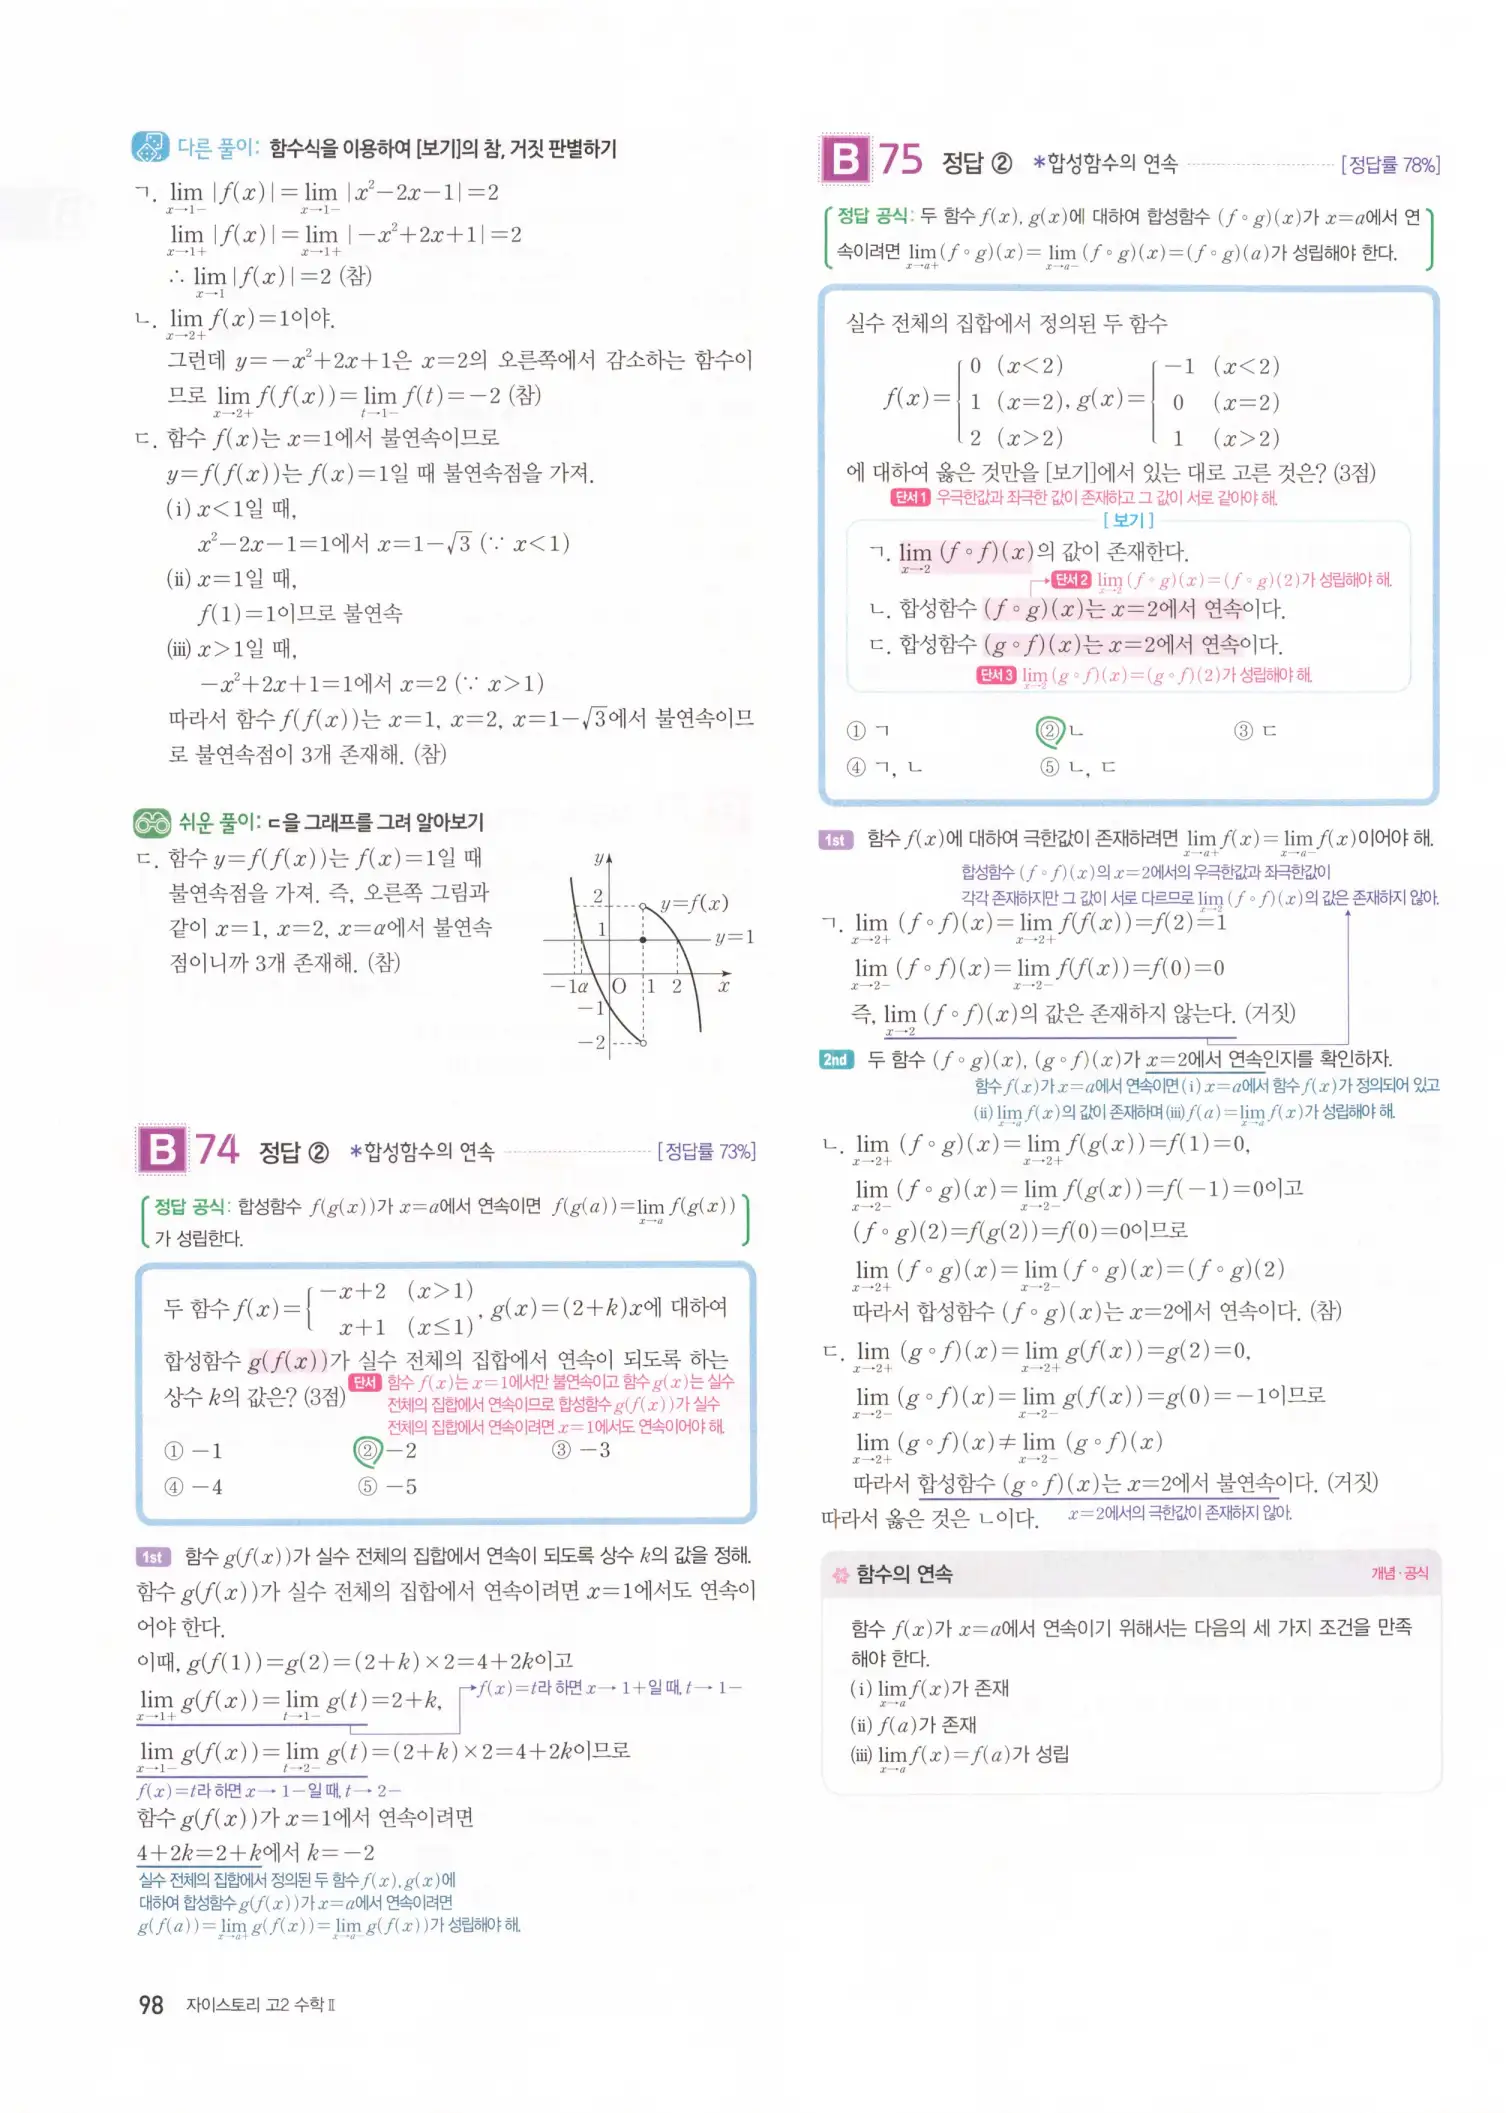 다른 풀이: 함수식을 이용하여 [보기]의 참, 거짓 판별하기
ㄱ. lim |f(x)|=lim |x²-2x-1|=2
x→1- x→1-
lim |f(x)|=lim |-x²+2x+1|=2
x→1+ x→1+
∴ lim |f(x)|=2 (참)
x→1
ㄴ. lim f(x)=1이야.
x→2+
그런데 y=-x²+2x+1은 x=2의 오른쪽에서 감소하는 함수이
므로 lim f(f(x))=lim f(t)=-2 (참)
x→2+ t→1-
ㄷ. 함수 f(x)는 x=1에서 불연속이므로
y=f(f(x))는 f(x)=1일 때 불연속점을 가져.
(i) x<1일 때,
x²-2x-1=1에서 x=1-√3 (∵ x<1)
(ii) x=1일 때,
f(1)=1이므로 불연속
(iii) x>1일 때,
-x²+2x+1=1에서 x=2 (∵ x>1)
따라서 함수 f(f(x))는 x=1, x=2, x=1-√3에서 불연속이므
로 불연속점이 3개 존재해. (참)
쉬운 풀이: ㄷ을 그래프를 그려 알아보기
ㄷ. 함수 y=f(f(x))는 f(x)=1일 때
불연속점을 가져. 즉, 오른쪽 그림과
같이 x=1, x=2, x=α에서 불연속
점이니까 3개 존재해. (참)
y
2
y=f(x)
1
y=1
-1 α O 1 2 x
-1
-2
B 74 정답 ② *합성함수의 연속 [정답률 73%]
정답 공식: 합성함수 f(g(x))가 x=a에서 연속이면 f(g(a))=lim f(g(x))
x→a
가 성립한다.
두 함수 f(x)={ -x+2 (x>1)
x+1 (x≤1) , g(x)=(2+k)x에 대하여
합성함수 g(f(x))가 실수 전체의 집합에서 연속이 되도록 하는
상수 k의 값은? (3점) 단서 함수 f(x)는 x=1에서만 불연속이고 함수 g(x)는 실수
전체의 집합에서 연속이므로 합성함수 g(f(x))가 실수
전체의 집합에서 연속이려면 x=1에서도 연속이어야 해.
① -1 ② -2 ③ -3
④ -4 ⑤ -5
1st 함수 g(f(x))가 실수 전체의 집합에서 연속이 되도록 상수 k의 값을 정해.
함수 g(f(x))가 실수 전체의 집합에서 연속이려면 x=1에서도 연속이
어야 한다.
이때, g(f(1))=g(2)=(2+k)×2=4+2k이고
lim g(f(x))=lim g(t)=2+k, f(x)=t라 하면 x→1+일 때, t→1-
x→1+ t→1-
lim g(f(x))=lim g(t)=(2+k)×2=4+2k이므로
x→1- t→2-
f(x)=t라 하면 x→1-일 때, t→2-
함수 g(f(x))가 x=1에서 연속이려면
4+2k=2+k에서 k=-2
실수 전체의 집합에서 정의된 두 함수 f(x), g(x)에
대하여 합성함수 g(f(x))가 x=a에서 연속이려면
g(f(a))=lim g(f(x))=lim g(f(x))가 성립해야 해.
x→a+ x→a-
98 자이스토리 고2 수학Ⅱ
B 75 정답 ② *합성함수의 연속 [정답률 78%]
정답 공식: 두 함수 f(x), g(x)에 대하여 합성함수 (f∘g)(x)가 x=a에서 연
속이려면 lim (f∘g)(x)=lim (f∘g)(x)=(f∘g)(a)가 성립해야 한다.
x→a+ x→a-
실수 전체의 집합에서 정의된 두 함수
0 (x<2) -1 (x<2)
f(x)={ 1 (x=2), g(x)={ 0 (x=2)
2 (x>2) 1 (x>2)
에 대하여 옳은 것만을 [보기]에서 있는 대로 고른 것은? (3점)
단서1 우극한값과 좌극한 값이 존재하고 그 값이 서로 같아야 해.
[보기]
ㄱ. lim (f∘f)(x)의 값이 존재한다.
x→2
단서2 lim (f∘g)(x)=(f∘g)(2)가 성립해야 해.
x→2
ㄴ. 합성함수 (f∘g)(x)는 x=2에서 연속이다.
ㄷ. 합성함수 (g∘f)(x)는 x=2에서 연속이다.
단서3 lim (g∘f)(x)=(g∘f)(2)가 성립해야 해.
x→2
① ㄱ ② ㄴ ③ ㄷ
④ ㄱ, ㄴ ⑤ ㄴ, ㄷ
1st 함수 f(x)에 대하여 극한값이 존재하려면 lim f(x)=lim f(x)이어야 해.
x→a+ x→a-
합성함수 (f∘f)(x)의 x=2에서의 우극한값과 좌극한값이
각각 존재하지만 그 값이 서로 다르므로 lim (f∘f)(x)의 값은 존재하지 않아.
x→2
ㄱ. lim (f∘f)(x)=lim f(f(x))=f(2)=1
x→2+ x→2+
lim (f∘f)(x)=lim f(f(x))=f(0)=0
x→2- x→2-
즉, lim (f∘f)(x)의 값은 존재하지 않는다. (거짓)
x→2
2nd 두 함수 (f∘g)(x), (g∘f)(x)가 x=2에서 연속인지를 확인하자.
함수 f(x)가 x=a에서 연속이면 (i) x=a에서 함수 f(x)가 정의되어 있고
(ii) lim f(x)의 값이 존재하며 (iii) f(a)=lim f(x)가 성립해야 해.
x→a x→a
ㄴ. lim (f∘g)(x)=lim f(g(x))=f(1)=0,
x→2+ x→2+
lim (f∘g)(x)=lim f(g(x))=f(-1)=0이고
x→2- x→2-
(f∘g)(2)=f(g(2))=f(0)=0이므로
lim (f∘g)(x)=lim (f∘g)(x)=(f∘g)(2)
x→2+ x→2-
따라서 합성함수 (f∘g)(x)는 x=2에서 연속이다. (참)
ㄷ. lim (g∘f)(x)=lim g(f(x))=g(2)=0,
x→2+ x→2+
lim (g∘f)(x)=lim g(f(x))=g(0)=-1이므로
x→2- x→2-
lim (g∘f)(x)≠lim (g∘f)(x)
x→2+ x→2-
따라서 합성함수 (g∘f)(x)는 x=2에서 불연속이다. (거짓)
따라서 옳은 것은 ㄴ이다. x=2에서의 극한값이 존재하지 않아.
함수의 연속 개념·공식
함수 f(x)가 x=a에서 연속이기 위해서는 다음의 세 가지 조건을 만족
해야 한다.
(i) lim f(x)가 존재
x→a
(ii) f(a)가 존재
(iii) lim f(x)=f(a)가 성립
x→a